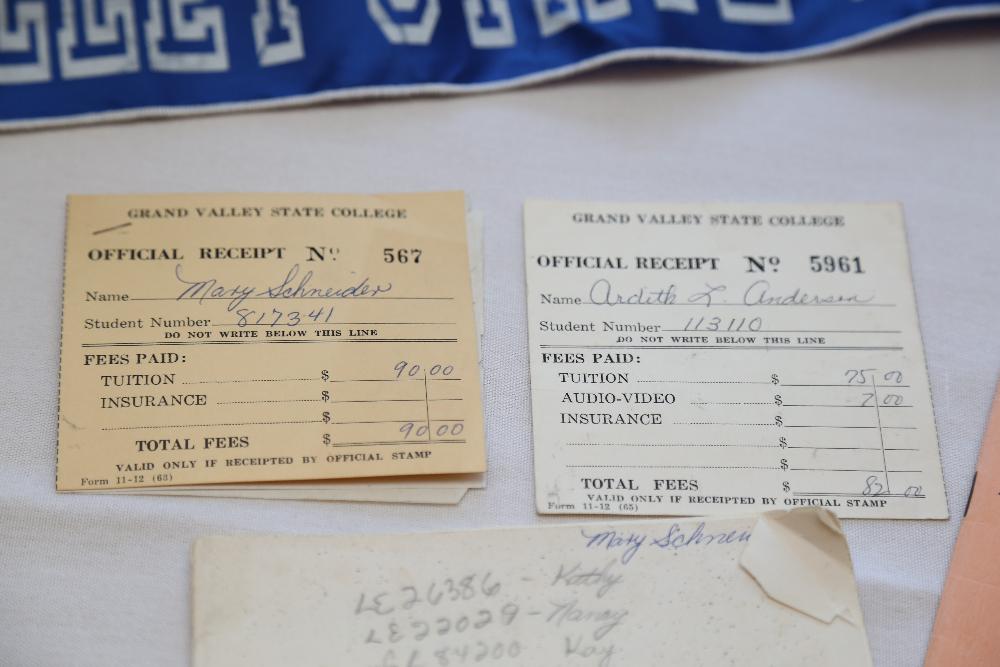 GRAND VALLEY STATE COLLEGE
OFFICIAL RECEIPT Nº 567
Name Mary Schneider
Student Number 817341
DO NOT WRITE BELOW THIS LINE
FEES PAID:
TUITION $ 90 00
INSURANCE $
$
TOTAL FEES $ 90 00
VALID ONLY IF RECEIPTED BY OFFICIAL STAMP
Form 11-12 (63)
GRAND VALLEY STATE COLLEGE
OFFICIAL RECEIPT Nº 5961
Name Ardith L. Anderson
Student Number 113110
DO NOT WRITE BELOW THIS LINE
FEES PAID:
TUITION $ 75 00
AUDIO-VIDEO $ 7 00
INSURANCE $
$
$
TOTAL FEES $ 82 00
VALID ONLY IF RECEIPTED BY OFFICIAL STAMP
Form 11-12 (65)
Mary Schnei
LE26386 - Kathy
LE22029 - Nancy
84200 Kay